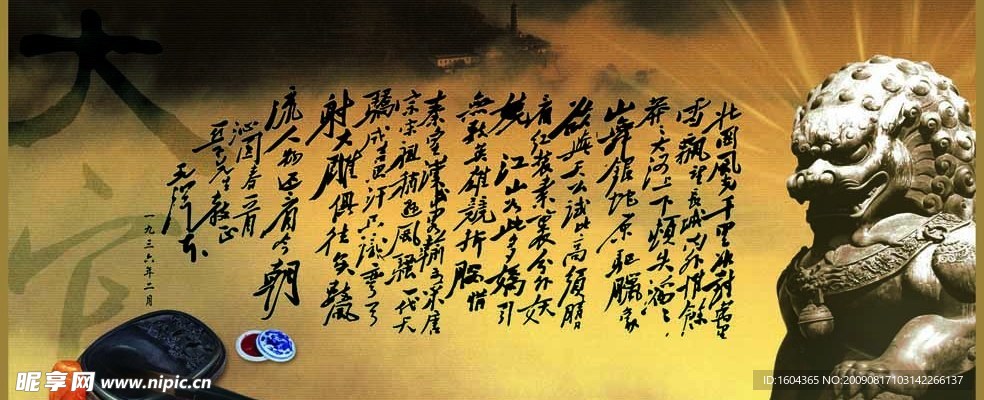 北国风光千里冰封万里
雪飘望长城内外惟余
莽々大河上下顿失滔々
山舞银蛇原驰腊象
欲与天公试比高须晴
日看红装素裹分外妖
娆江山如此多娇引
无数英雄竞折腰惜
秦皇汉武略输文采唐
宗宋祖稍逊风骚一代天
骄成吉思汗只识弯弓
射大雕俱往矣数风
流人物还看今朝
沁园春一首
毛泽东
一九三六年二月
大
昵享网 www.nipic.cn
ID:1604365 NO:20090817103142266137